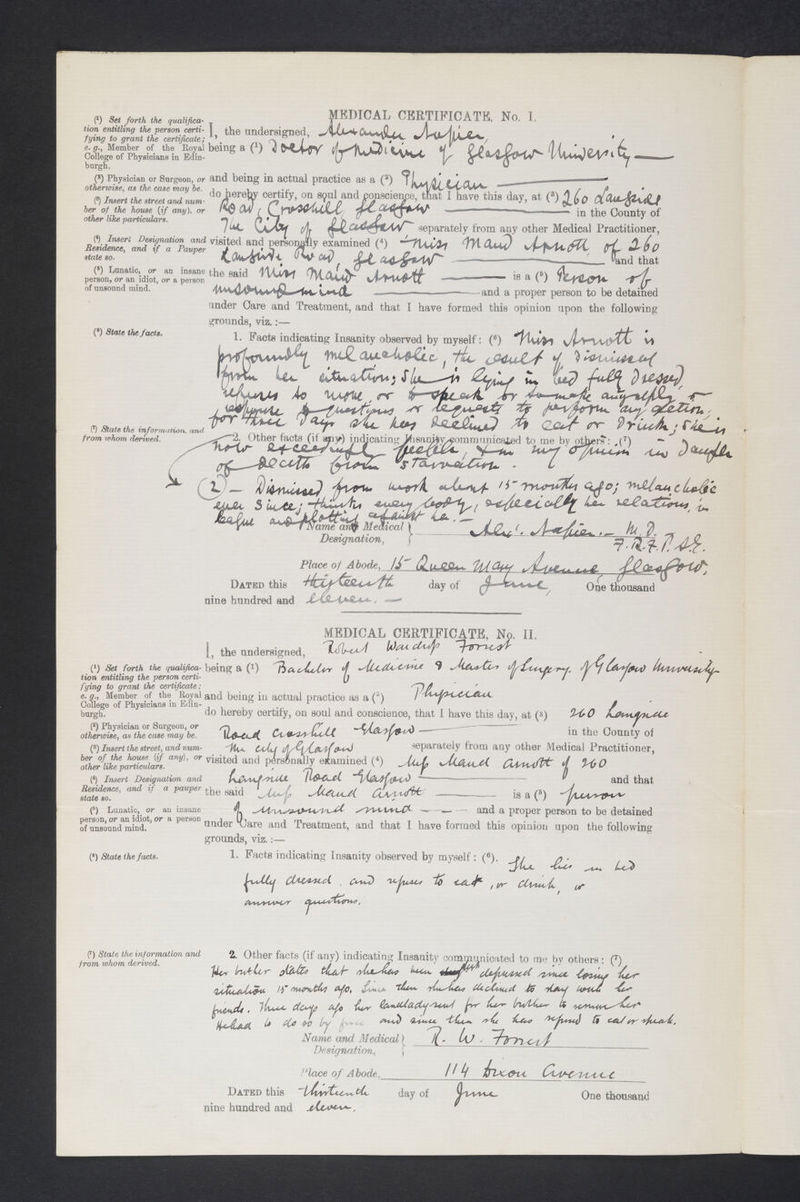 MEDICAL CERTIFICATE, No. I.
(¹) Set forth the qualifica-
tion entitling the person certi-
fying to grant the certificate;
e.g., Member of the Royal
College of Physicians in Edin-
burgh.
I, the undersigned, Alexander Napier,
being a (¹) Doctor of Medicine of Glasgow University —
(²) Physician or Surgeon, or
otherwise, as the case may be.
and being in actual practice as a (²) Physician —
(³) Insert the street and num-
ber of the house (if any), or
other like particulars.
do hereby certify, on soul and conscience, that I have this day, at (³) 260 Langside
Road, Crosshill, Glasgow — in the County of
The City of Glasgow separately from any other Medical Practitioner,
(⁴) Insert Designation and
Residence, and if a Pauper
state so.
visited and personally examined (⁴) Miss Maud Arnott of 260
Langside Road, Glasgow — and that
(⁵) Lunatic, or an insane
person, or an idiot, or a person
of unsound mind.
the said Miss Maud Arnott — is a (⁵) Person of
unsound mind — and a proper person to be detained
under Care and Treatment, and that I have formed this opinion upon the following
grounds, viz.:—
(⁶) State the facts.
1. Facts indicating Insanity observed by myself: (⁶) Miss Arnott is
profoundly melancholic, the result of dismissal
from her situation; She is lying in bed fully dressed,
refuses to move, or to speak or to make any reply or
response to questions or requests to perform any action;
for three days she has declined to eat or drink; she is
(⁷) State the information and
from whom derived.
2. Other facts (if any) indicating Insanity communicated to me by others: (⁷)
now exceedingly feeble, & in my opinion in danger
of death from starvation.
(2) — Dismissed from work about 15 months ago; melancholic
ever since; thinks every body, especially her relations, in
league and plotting against her.—
Name and Medical
Designation,
Alexr. Napier.— M.D.
F.R.F.P.S.G.
Place of Abode, 15 Queen Mary Avenue, Glasgow.
DATED this thirteenth day of June, One thousand
nine hundred and eleven. —
MEDICAL CERTIFICATE, No. II.
I, the undersigned, Robert Wardrop Forrest
(¹) Set forth the qualifica-
tion entitling the person certi-
fying to grant the certificate;
e.g., Member of the Royal
College of Physicians in Edin-
burgh.
being a (¹) Bachelor of Medicine & Master of Surgery. of Glasgow University
and being in actual practice as a (²) Physician
(²) Physician or Surgeon, or
otherwise, as the case may be.
do hereby certify, on soul and conscience, that I have this day, at (³) 260 Langside
Road Crosshill Glasgow — in the County of
(³) Insert the street, and num-
ber of the house (if any), or
other like particulars.
the city of Glasgow separately from any other Medical Practitioner,
visited and personally examined (⁴) Miss Maud Arnott of 260
(⁴) Insert Designation and
Residence, and if a pauper
state so.
Langside Road Glasgow — and that
the said Miss Maud Arnott — is a (⁵) person
(⁵) Lunatic, or an insane
person, or an idiot, or a person
of unsound mind.
of unsound mind — and a proper person to be detained
under Care and Treatment, and that I have formed this opinion upon the following
grounds, viz.:—
(⁶) State the facts.
1. Facts indicating Insanity observed by myself: (⁶). She lies in bed
fully dressed. and refuses to eat, or drink, or
answer questions.
(⁷) State the information and
from whom derived.
2. Other facts (if any) indicating Insanity communicated to me by others: (⁷)
Her brother states that she has been depressed since losing her
situation 15 months ago. Since then she has declined to stay with her
friends. Three days ago her landlady sent for her brother to remove her
He had to do so by force and since then she has refused to eat or speak.
Name and Medical
Designation,
R. W. Forrest
Place of Abode, 114 Dixon Avenue
DATED this thirteenth day of June One thousand
nine hundred and eleven.